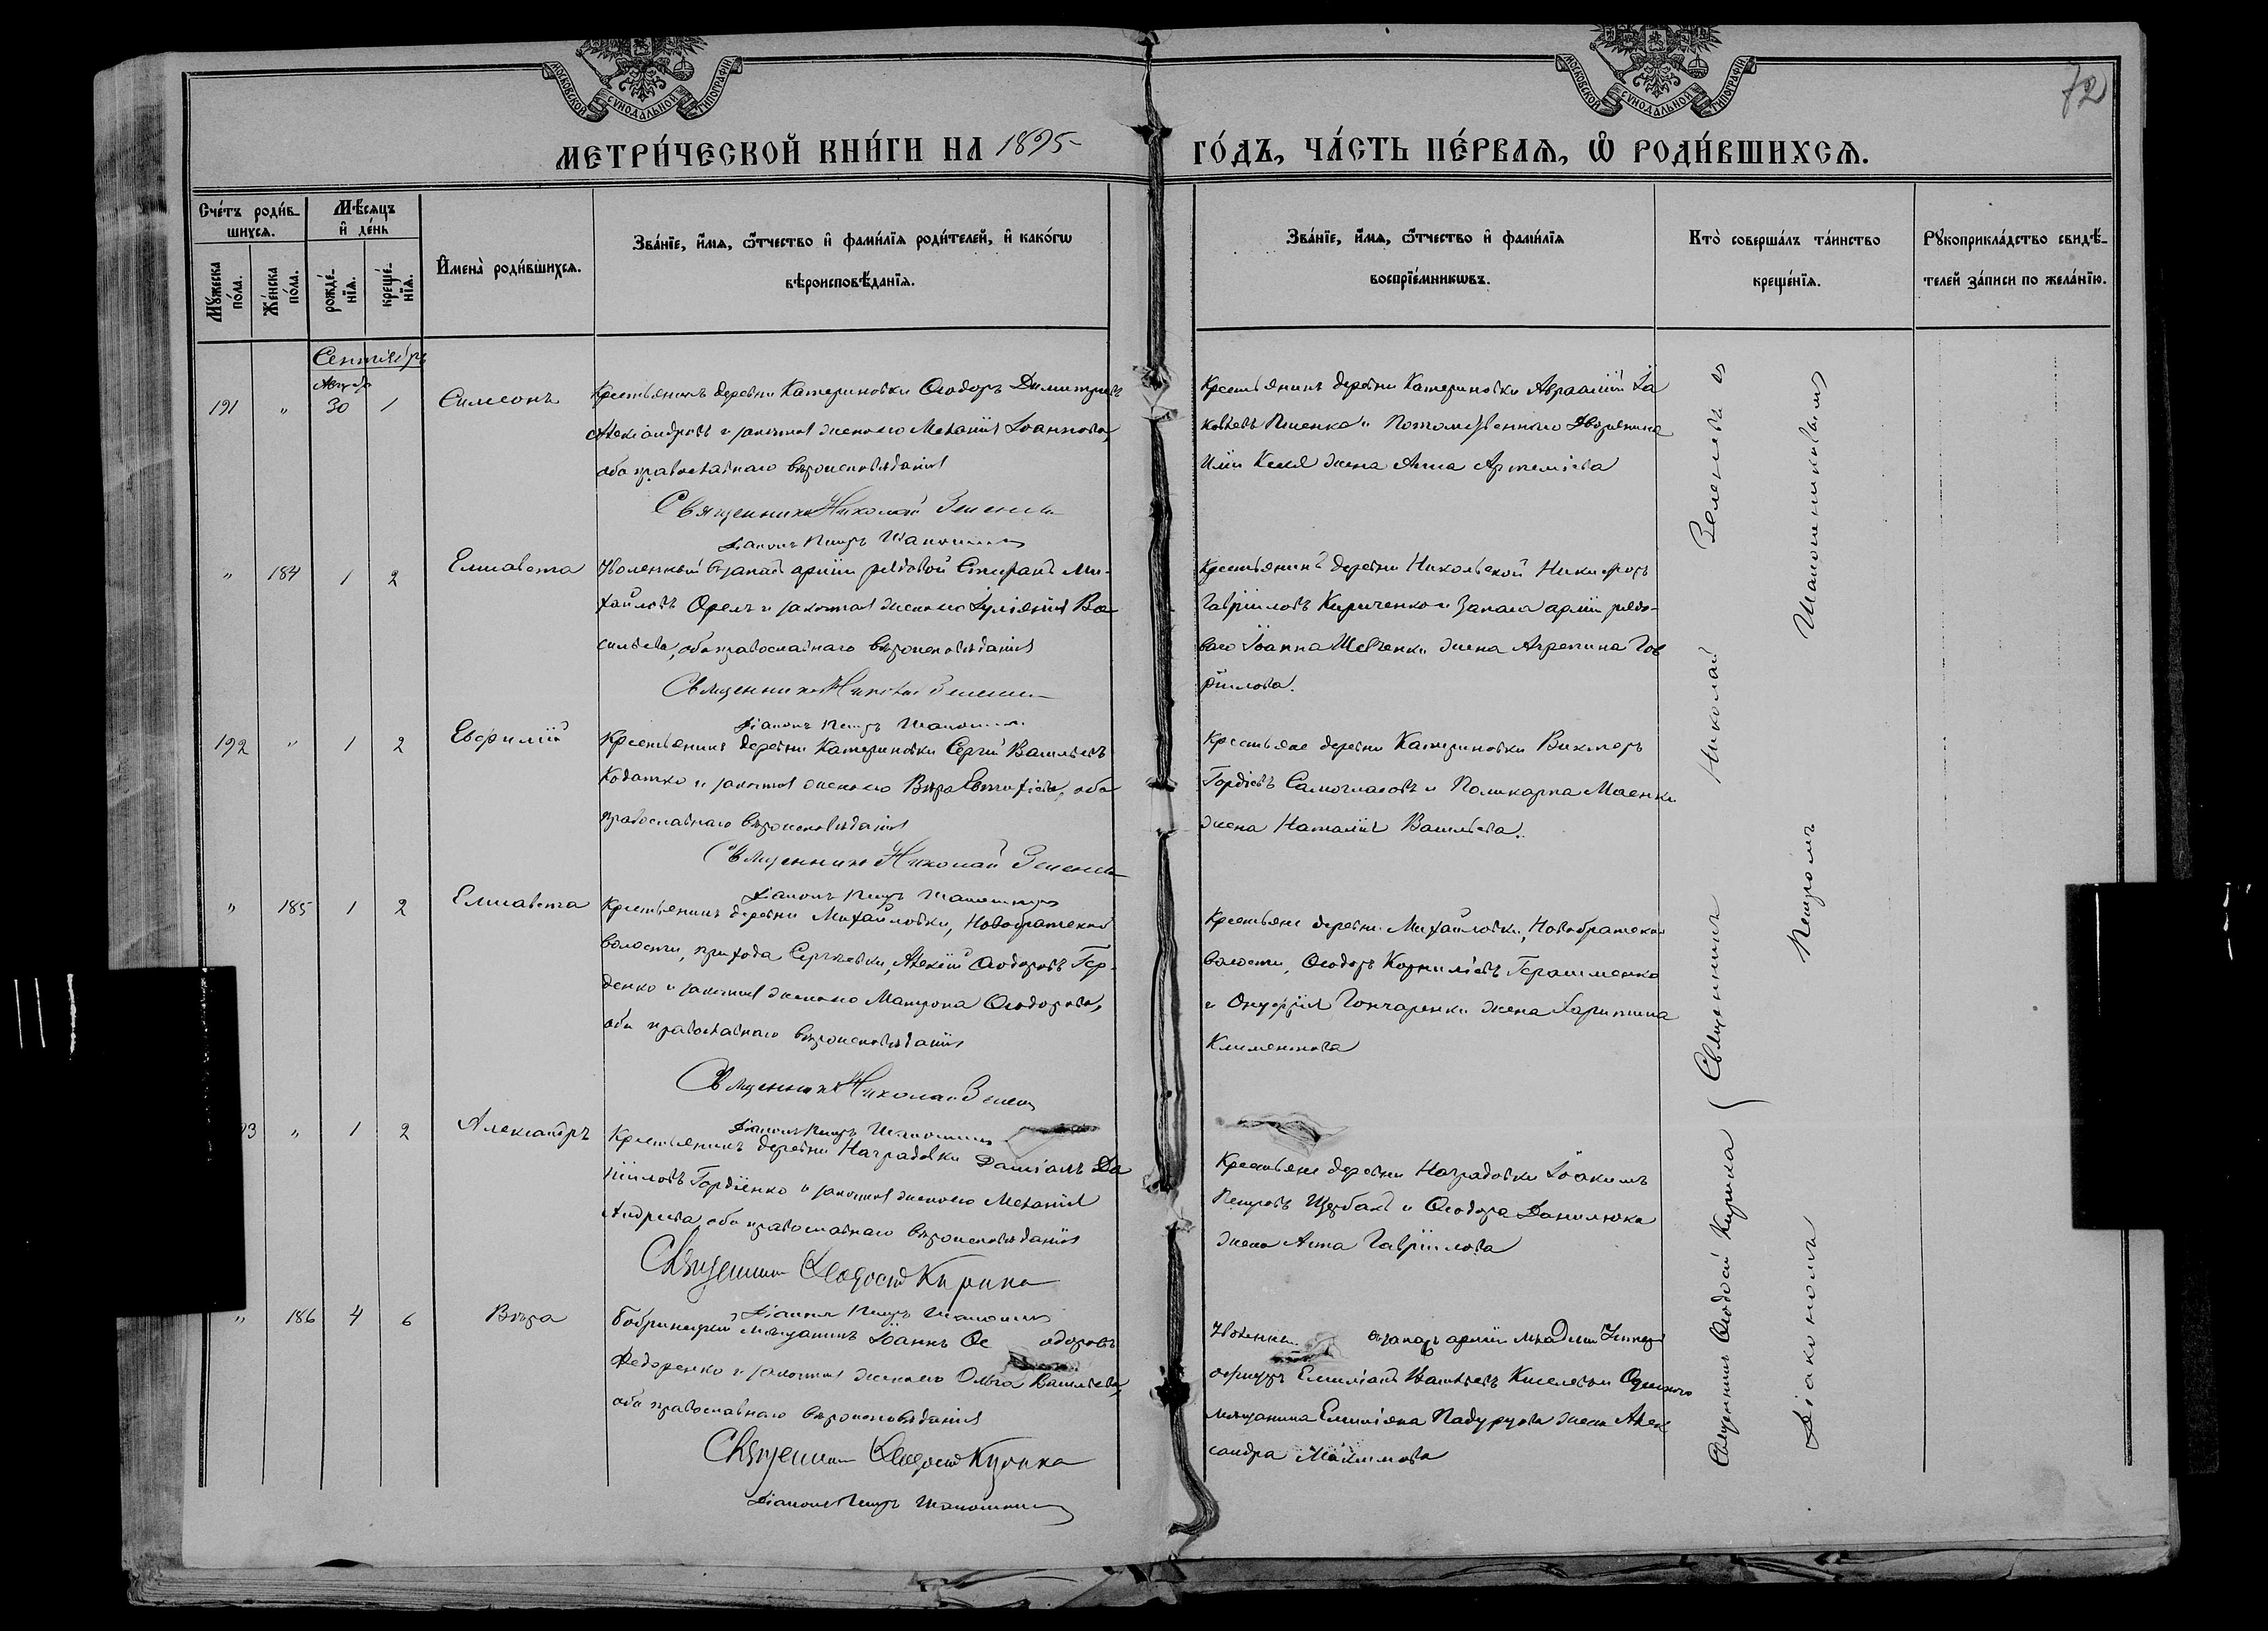 72
МОСКОВСКОЙ СѴНОДАЛЬНОЙ ТИПОГРАФІИ
МОСКОВСКОЙ СѴНОДАЛЬНОЙ ТИПОГРАФІИ
МЕТРИ́ЧЕСКОЙ КНИ́ГИ НА 1895 ГО́ДЪ, ЧА́СТЬ ПЕ́РВАѦ, Ѡ РОДИ́ВШИХСѦ.
Сче́тъ роди́в-
шихсѧ.
Мѣ́сѧцъ
и҆ де́нь
Мꙋ́жеска
по́ла.
Же́нска
по́ла.
рожде́-
нїѧ.
креще́-
нїѧ.
И҆мена̀ роди́вшихсѧ.
Зва́нїе, и҆́мѧ, ѻ҆́тчество и҆ фами́лїѧ роди́телей, и҆ како́гѡ
вѣроисповѣ́данїѧ.
Зва́нїе, и҆́мѧ, ѻ҆́тчество и҆ фами́лїѧ
воспрїе́мникѡвъ.
Кто̀ соверша́лъ та́инство
креще́нїѧ.
Рꙋкоприкла́дство свидѣ́-
телей за́писи по жела́нїю.
Сентябрь
Августъ
191 " 30 1 Симеонъ
Крестьянинъ деревни Катериновки Ѳеодоръ Димитріевъ
Александровъ и законная жена его Меланія Іоаннова,
оба православнаго вѣроисповѣданія
Священникъ Николай Зеленевъ
Діаконъ Петръ Шапошник
Крестьянинъ деревни Катериновки Авраамій Іа
ковлевъ Пшенко и Потомственнаго Дворянина
Иліи жена Анна Артеміева
" 184 1 2 Елисавета
Уволенный въ запасъ арміи рядовой Стефанъ Ми-
хайловъ Орелъ и законная жена его Іуліанія Ва-
сильева, оба православнаго вѣроисповѣданія
Священникъ Николай Зеленевъ
Діаконъ Петръ Шапошник
Крестьянинъ деревни Никольской Никифоръ
Гавріиловъ Кириченко и Запаса арміи рядо-
ваго Іоанна Шевченки жена Агрепина Гав
ріилова.
192 " 1 2 Евфимій
Крестьянинъ деревни Катериновки Сергій Васильевъ
Кодатко и законная жена его Вѣра Евтихіева, оба
православнаго вѣроисповѣданія
Священникъ Николай Зеленевъ
Діаконъ Петръ Шапошник
Крестьяне деревни Катериновки Викторъ
Гордіевъ Самогласовъ и Поликарпа Маенки
жена Наталія Васильева.
" 185 1 2 Елисавета
Крестьянинъ деревни Михайловки, Новобратской
волости, прихода Сергѣевки, Алексій Ѳеодоровъ Гор-
денко и законная жена его Матрона Ѳеодорова,
оба православнаго вѣроисповѣданія
Священникъ Николай Зеленевъ
Діаконъ Петръ Шапошник
Крестьяне деревни Михайловки, Новобратской
волости, Ѳеодоръ Корниліевъ Герасименко
и Онуфрія Гончаренки жена Харитина
Климентова
93 " 1 2 Александръ
Крестьянинъ деревни Наградовки Даміанъ Да
ніиловъ Гордіенко и законная жена его Меланія
Андреева, оба православнаго вѣроисповѣданія
Священникъ Ѳеодосій Кирика
Діаконъ Петръ Шапошник
Крестьяне деревни Наградовки Іоакимъ
Петровъ Щербакъ и Ѳеодора Данилюка
жена Анна Гавріилова
" 186 4 6 Вѣра
Бобринецкій мѣщанинъ Іоаннъ Ѳе одоровъ
Федоренко и законная жена его Ольга Васильева,
оба православнаго вѣроисповѣданія
Священникъ Ѳеодосій Кирика
Діаконъ Петръ Шапошник
Уволенный въ запасъ арміи младшій Унтеръ
офицеръ Емиліанъ Васильевъ Киселевъ и Одесскаго
мѣщанина Емиліана жена Алек
сандра Максимова
Священникъ Ѳеодосій Кирика { Священникъ Николай Зеленевъ съ
Діакономъ Петромъ Шапошниковымъ